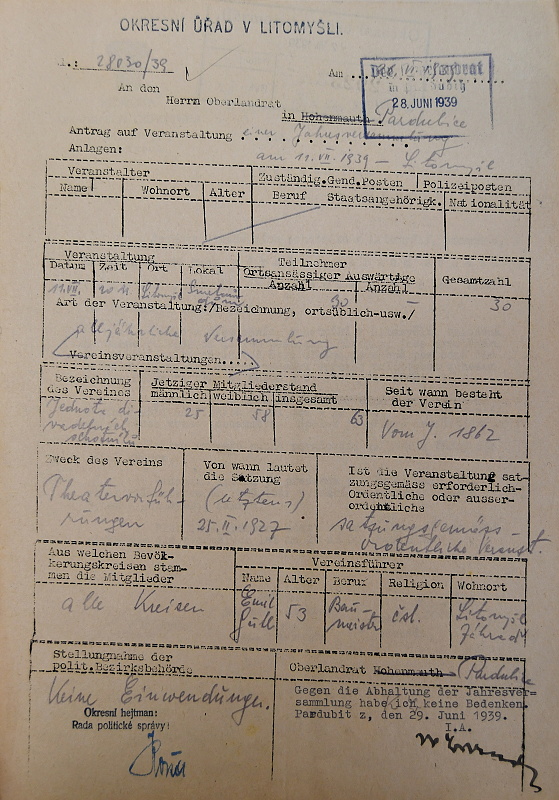 OKRESNÍ ÚŘAD V LITOMYŠLI.
28030/39
Am
28. JUNI 1939
An den
Herrn Oberlandrat
in Hohenmauth Pardubice
Antrag auf Veranstaltung einer Jahresversammlung
Anlagen: am 11.VII.1939 – Litomyšl
Veranstalter Zuständig.Gend.Posten Polizeiposten
Name Wohnort Alter Beruf Staatsangehörigk. Nationalität
Veranstaltung Teilnehmer
Datum Zeit Ort Lokal Ortsansässiger Auswärtige Gesamtzahl
Anzahl Anzahl
30 – 30
Art der Veranstaltung:/Bezeichnung, ortsüblich-usw./
alljährliche Versammlung
Vereinsveranstaltungen...
Bezeichnung des Vereines Jetziger Mitgliederstand Seit wann besteht der Verein
männlich weiblich insgesamt
Jednota divadelních
25 58 63
Vom J. 1862
Zweck des Vereins Von wann lautet die Satzung Ist die Veranstaltung satzungsgemäss erforderlich-Ordentliche oder ausserordentliche
Theatervorführungen
(letztens)
25.II.1927
satzungsgemäss –
Aus welchen Bevölkerungskreisen stammen die Mitglieder Vereinsführer
Name Alter Beruf Religion Wohnort
alle Kreisen
Emil
53
Baumeister
čsl.
Litomyšl
Stellungnahme der
polit.Bezirksbehörde
Keine Einwendungen.
Okresní hejtman:
Rada politické správy:
Oberlandrat Hohenmauth Pardubice
Gegen die Abhaltung der Jahresver-
sammlung habe ich keine Bedenken.
Pardubit z, den 29. Juni 1939.
I.A.